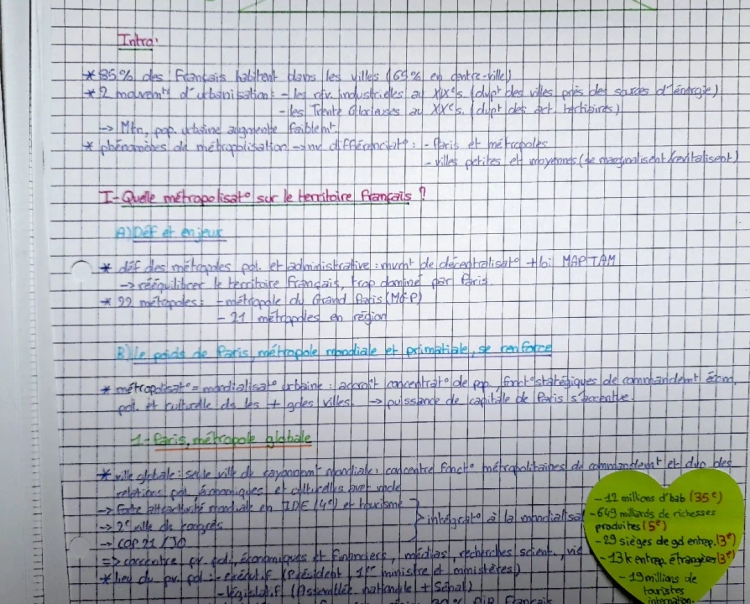 Intro:
* 85% des Français habitent dans les villes (69% en centre-ville)
* 2 mouvemts d'urbanisation: - les rév. industrielles au XIXe s. (dvpt des villes près des sources d'énergie)
- les Trente Glorieuses au XXe s. (dvpt des act. tertiaires)
→ Mtn, pop. urbaine augmente faiblemt
* phénomènes de métropolisation → nv. différenciato: - Paris et métropoles
- villes petites et moyennes (se marginalisent/revitalisent)
I- Quelle métropolisato sur le territoire français ?
A) Déf et enjeux
* déf des métropoles pol. et administrative: mvmt de décentralisato + loi MAPTAM
→ rééquilibrer le territoire français, trop dominé par Paris.
* 22 métropoles: - métropole du Grand Paris (MGP)
- 21 métropoles en région
B) Le poids de Paris, métropole mondiale et primatiale, se renforce
* métropolisato = mondialisato urbaine: accroît concentrato de pop, foncto stratégiques de commandemt écon,
pol. et culturelle ds les + gdes villes. → puissance de capitale de Paris s'accentue.
1- Paris, métropole globale
* ville globale: seule ville de rayonnemt mondiale: concentre foncto métropolitaines de commandemt et duo des
relations pol, économiques et culturelles avec monde
→ Forte attractivité mondiale en IDE (4e) et tourisme
→ 2e ville de congrès
→ COP21 / JO
intégrato à la mondialisa
=> concentre pv. pol., économiques et financiers, médias, recherches scient., vie
* lieu du pv. pol.: - exécutif (Président, 1er ministre et ministères)
- législatif (Assemblée nationale + Sénat)
Air France
- 12 millions d'hab (35e)
- 649 milliards de richesses
produites (5e)
- 29 sièges de gd entrep. (3e)
- 13k entrep. étrangères (3e)
- 19 millions de
touristes
internation.